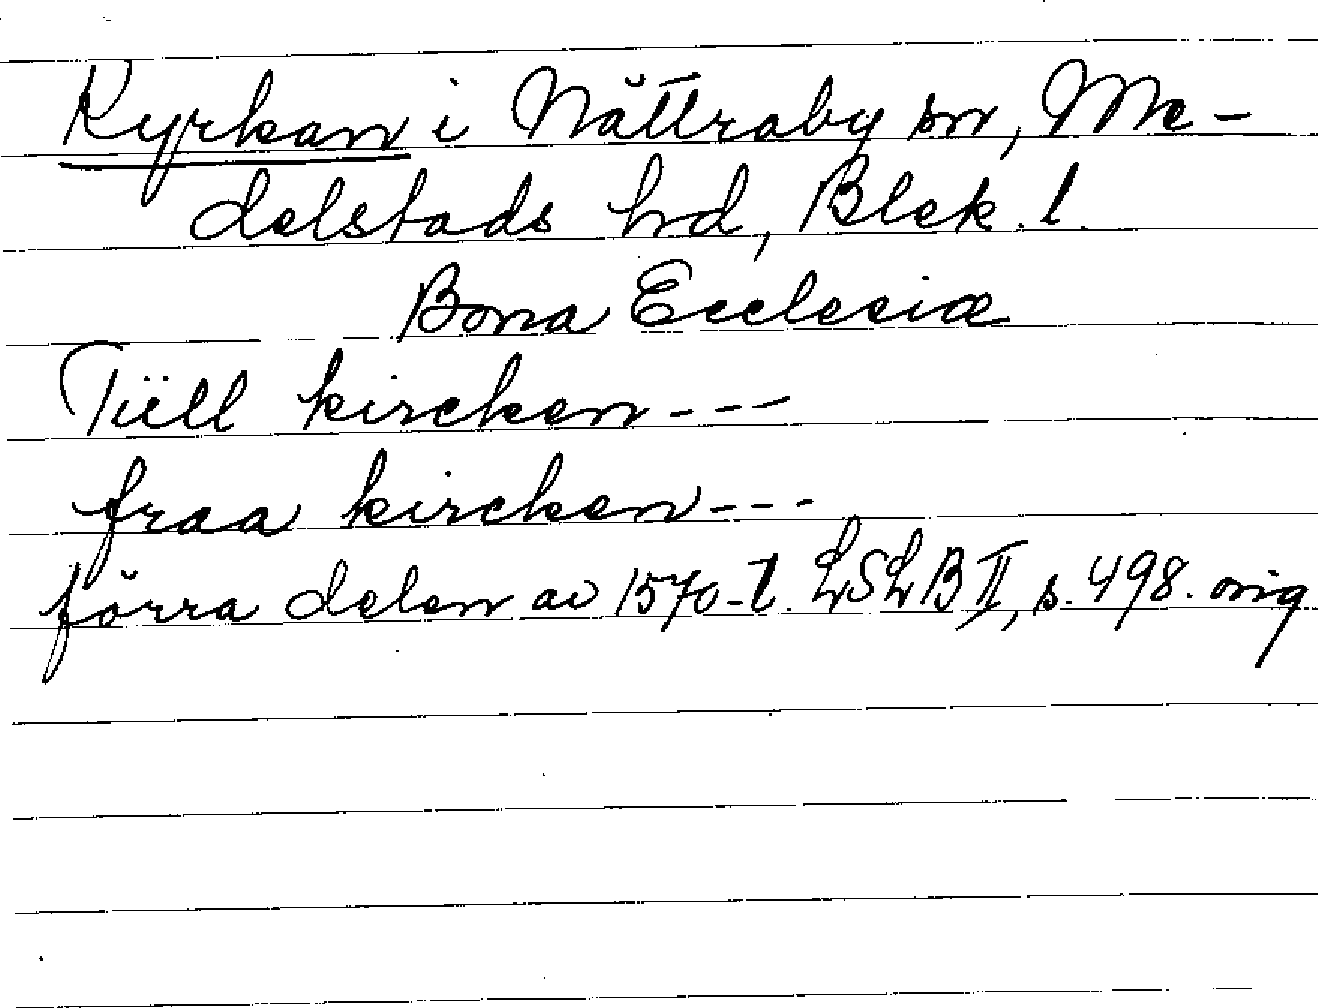 Kyrkan i Nättraby sn, Me-
delstads hd, Blek. l.
Bona Ecclesiæ
Tüll kircken---
fraa kircken---
förra delen av 1570-t. LSLB II, s. 498. orig